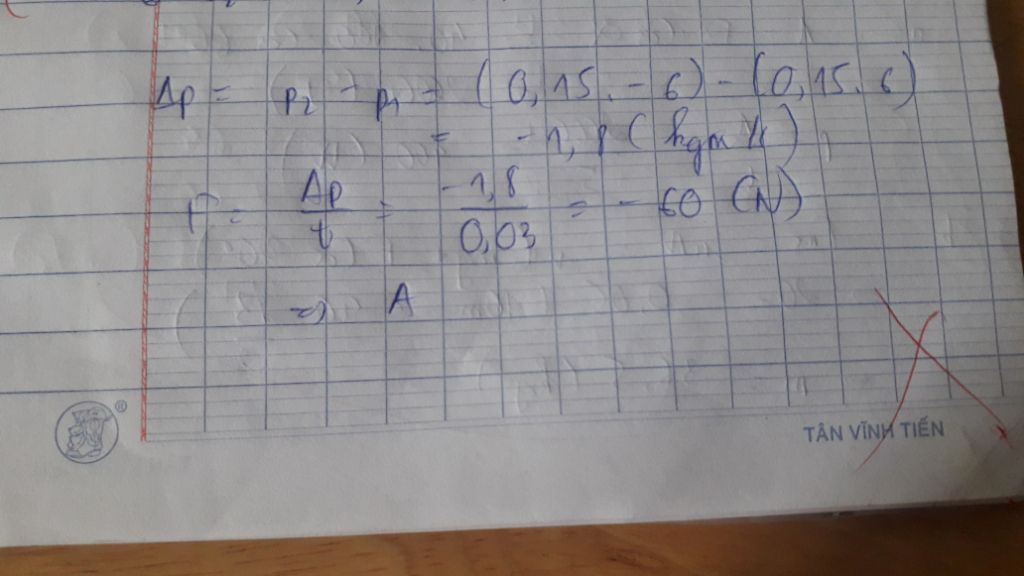 Δp = p₂ - p₁ = (0,15. - 6) - (0,15. 6)
= -1,8 (kgm/s)
F = Δp/t = -1,8/0,03 = - 60 (N)
=> A
®
TÂN VĨNH TIẾN